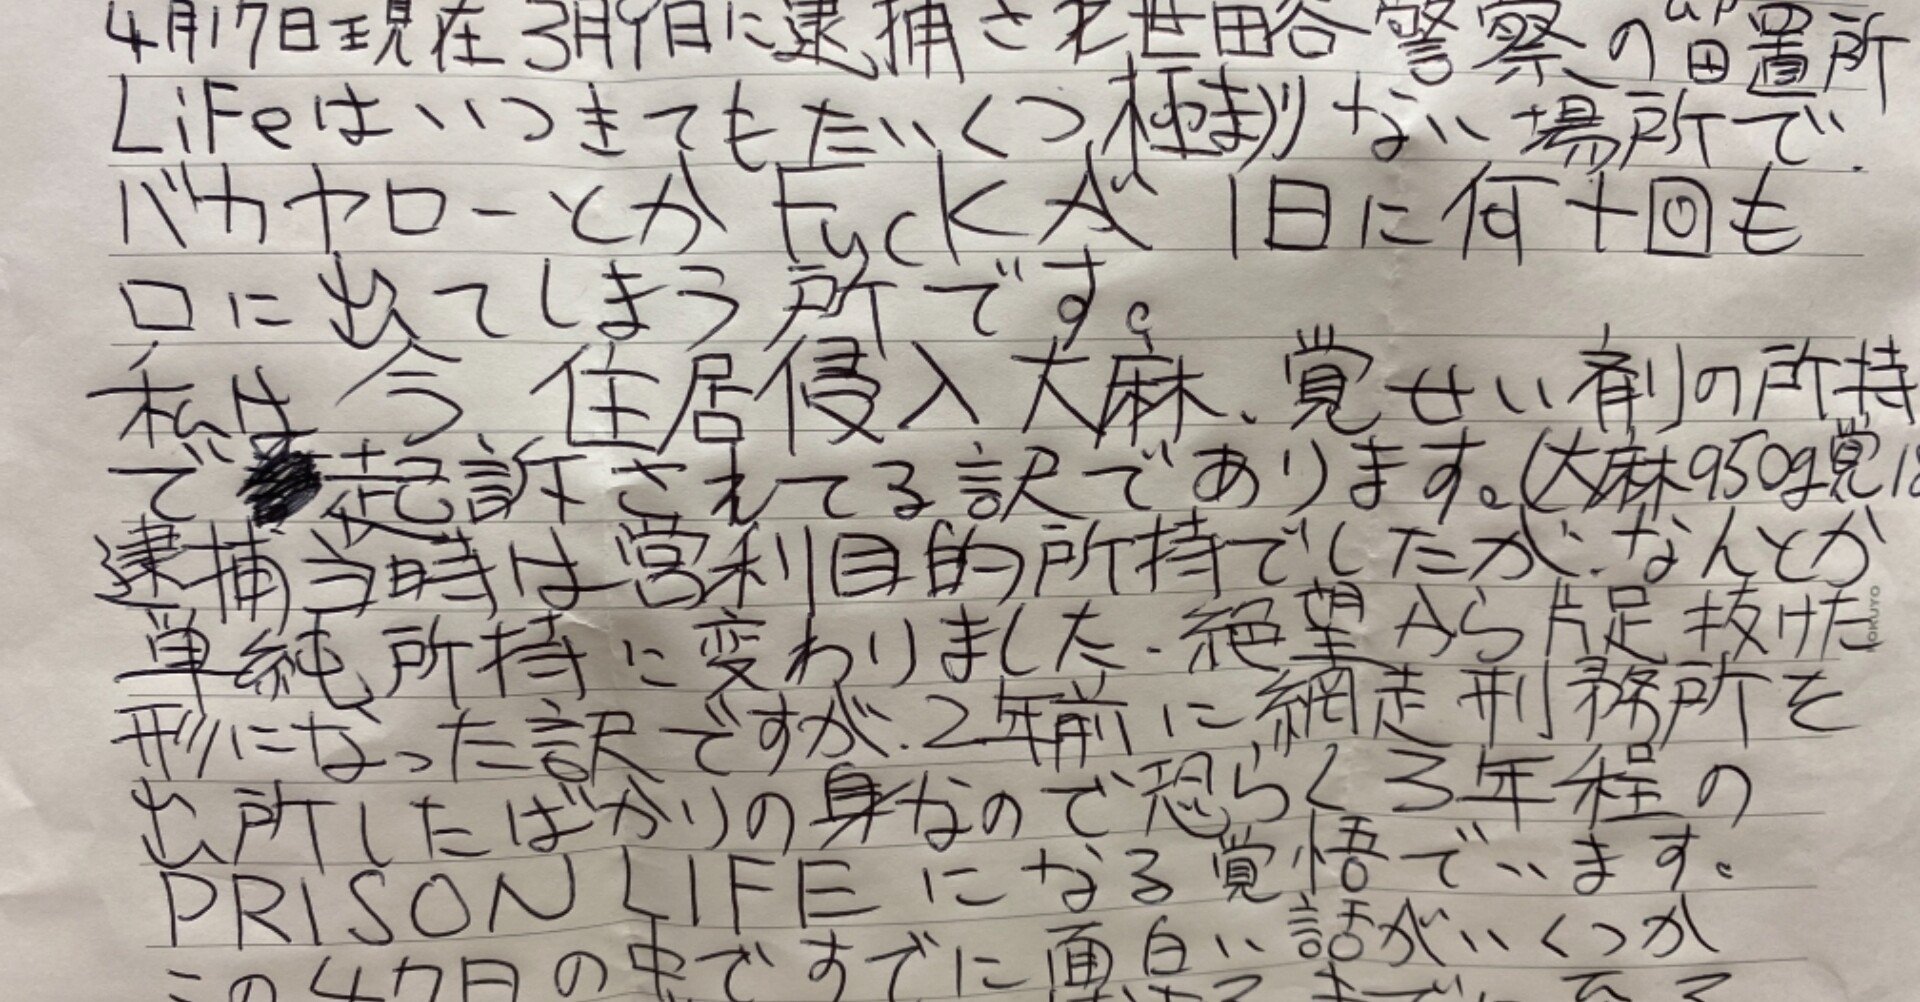 4月17日現在 3月9日に逮捕され世田谷警察の留置所
LiFeはいつきてもたいくつ極まりない場所で.
バカヤローとか FucKが 1日に何十回も
口に出てしまう所です。
私は 今 住居侵入 大麻、覚せい剤の所持
で 起訴されてる訳であります。(大麻950g覚
逮捕当時は営利目的所持でしたが、なんとか
単純所持に変わりました. 絶望から片足抜けた
形になった訳ですが、2年前に網走刑務所を
出所したばかりの身なので恐らく3年程の
PRISON LIFE になる覚悟でいます。
この47日の中ですでに面白い話がいくつか
KOKUYO